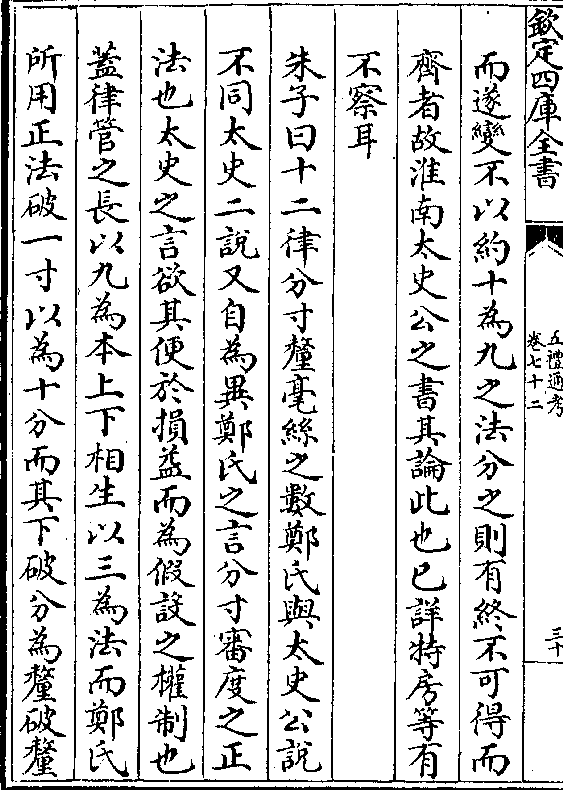 欽定四庫全書
五禮通考
卷七十二
三十
而遂變不以約十為九之法分之則有終不可得而
齊者故淮南太史公之書其論此也已詳特房等有
不察耳
朱子曰十二律分寸釐毫絲之數鄭氏與太史公說
不同太史二說又自為異鄭氏之言分寸審度之正
法也太史之言欲其便於損益而為假設之權制也
蓋律管之長以九為本上下相生以三為法而鄭氏
所用正法破一寸以為十分而其下破分為釐破釐